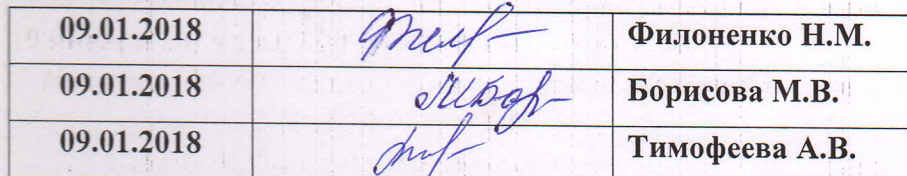 09.01.2018 Филоненко Н.М.
09.01.2018 Борисова М.В.
09.01.2018 Тимофеева А.В.